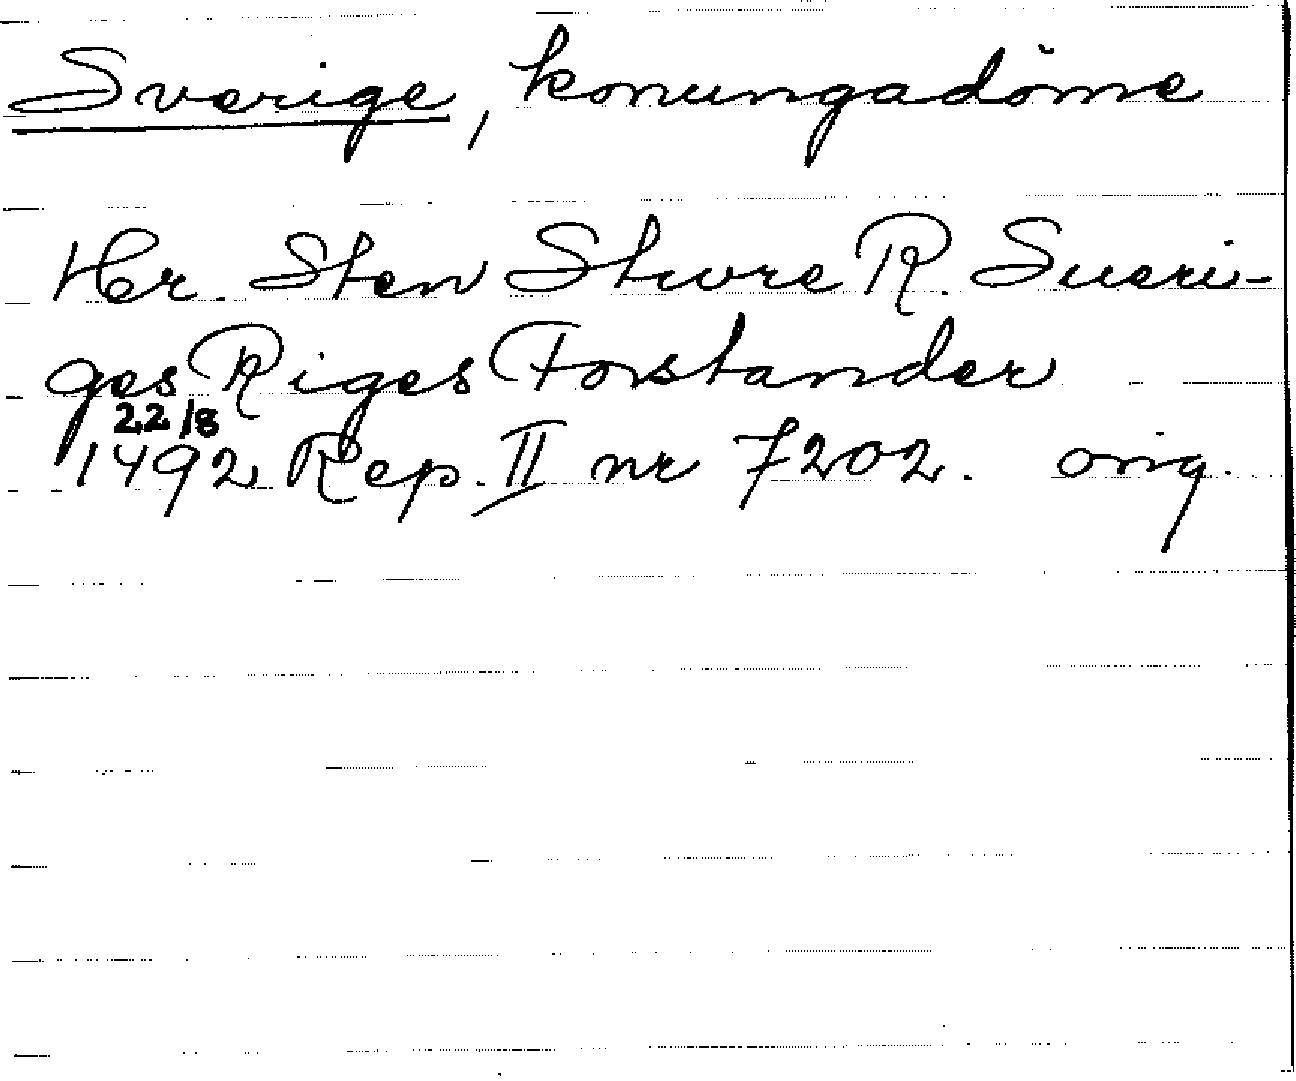 Sverige, konungadöme
Her. Sten Sture R. Sueri-
ges Riges Forstander
22/8
1492 Rep. II nr 7202. orig.